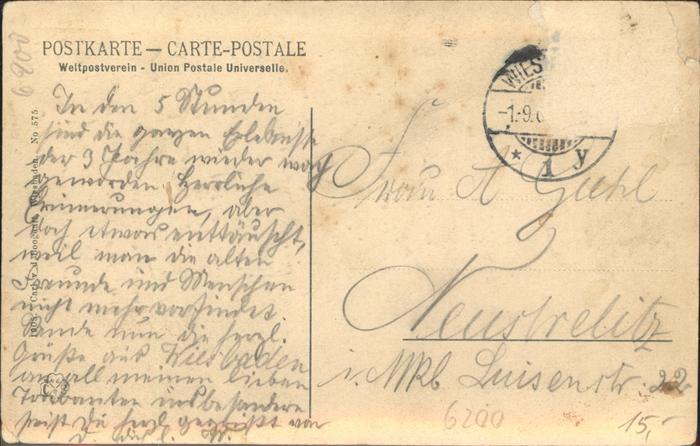 POSTKARTE — CARTE-POSTALE
Weltpostverein - Union Postale Universelle.
6200
In den 5 Stunden
sind die ganzen Erlebnisse
der 3 Jahre wieder wach
geworden Herrliche
Erinnerungen, aber
doch etwas enttäuscht,
weil man die alten
Freunde und Menschen
nicht mehr vorfindet.
Sende nun die herzl.
Grüße aus Wiesbaden
an all meinen lieben
insbesondere
seist Du herzl. gegrüßt von
No 575
Wiesbaden.
1903. Carl v. d.
WIES
-1.-9.
* 1 y
Frau A Guhl
Neustrelitz
i. Mkb. Luisenstr. 22
6200
15,-